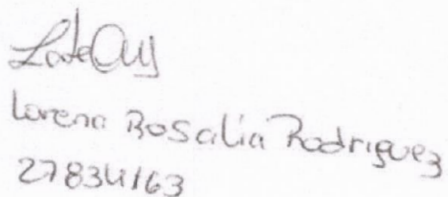 Lorena Rosalia Rodriguez
27834163